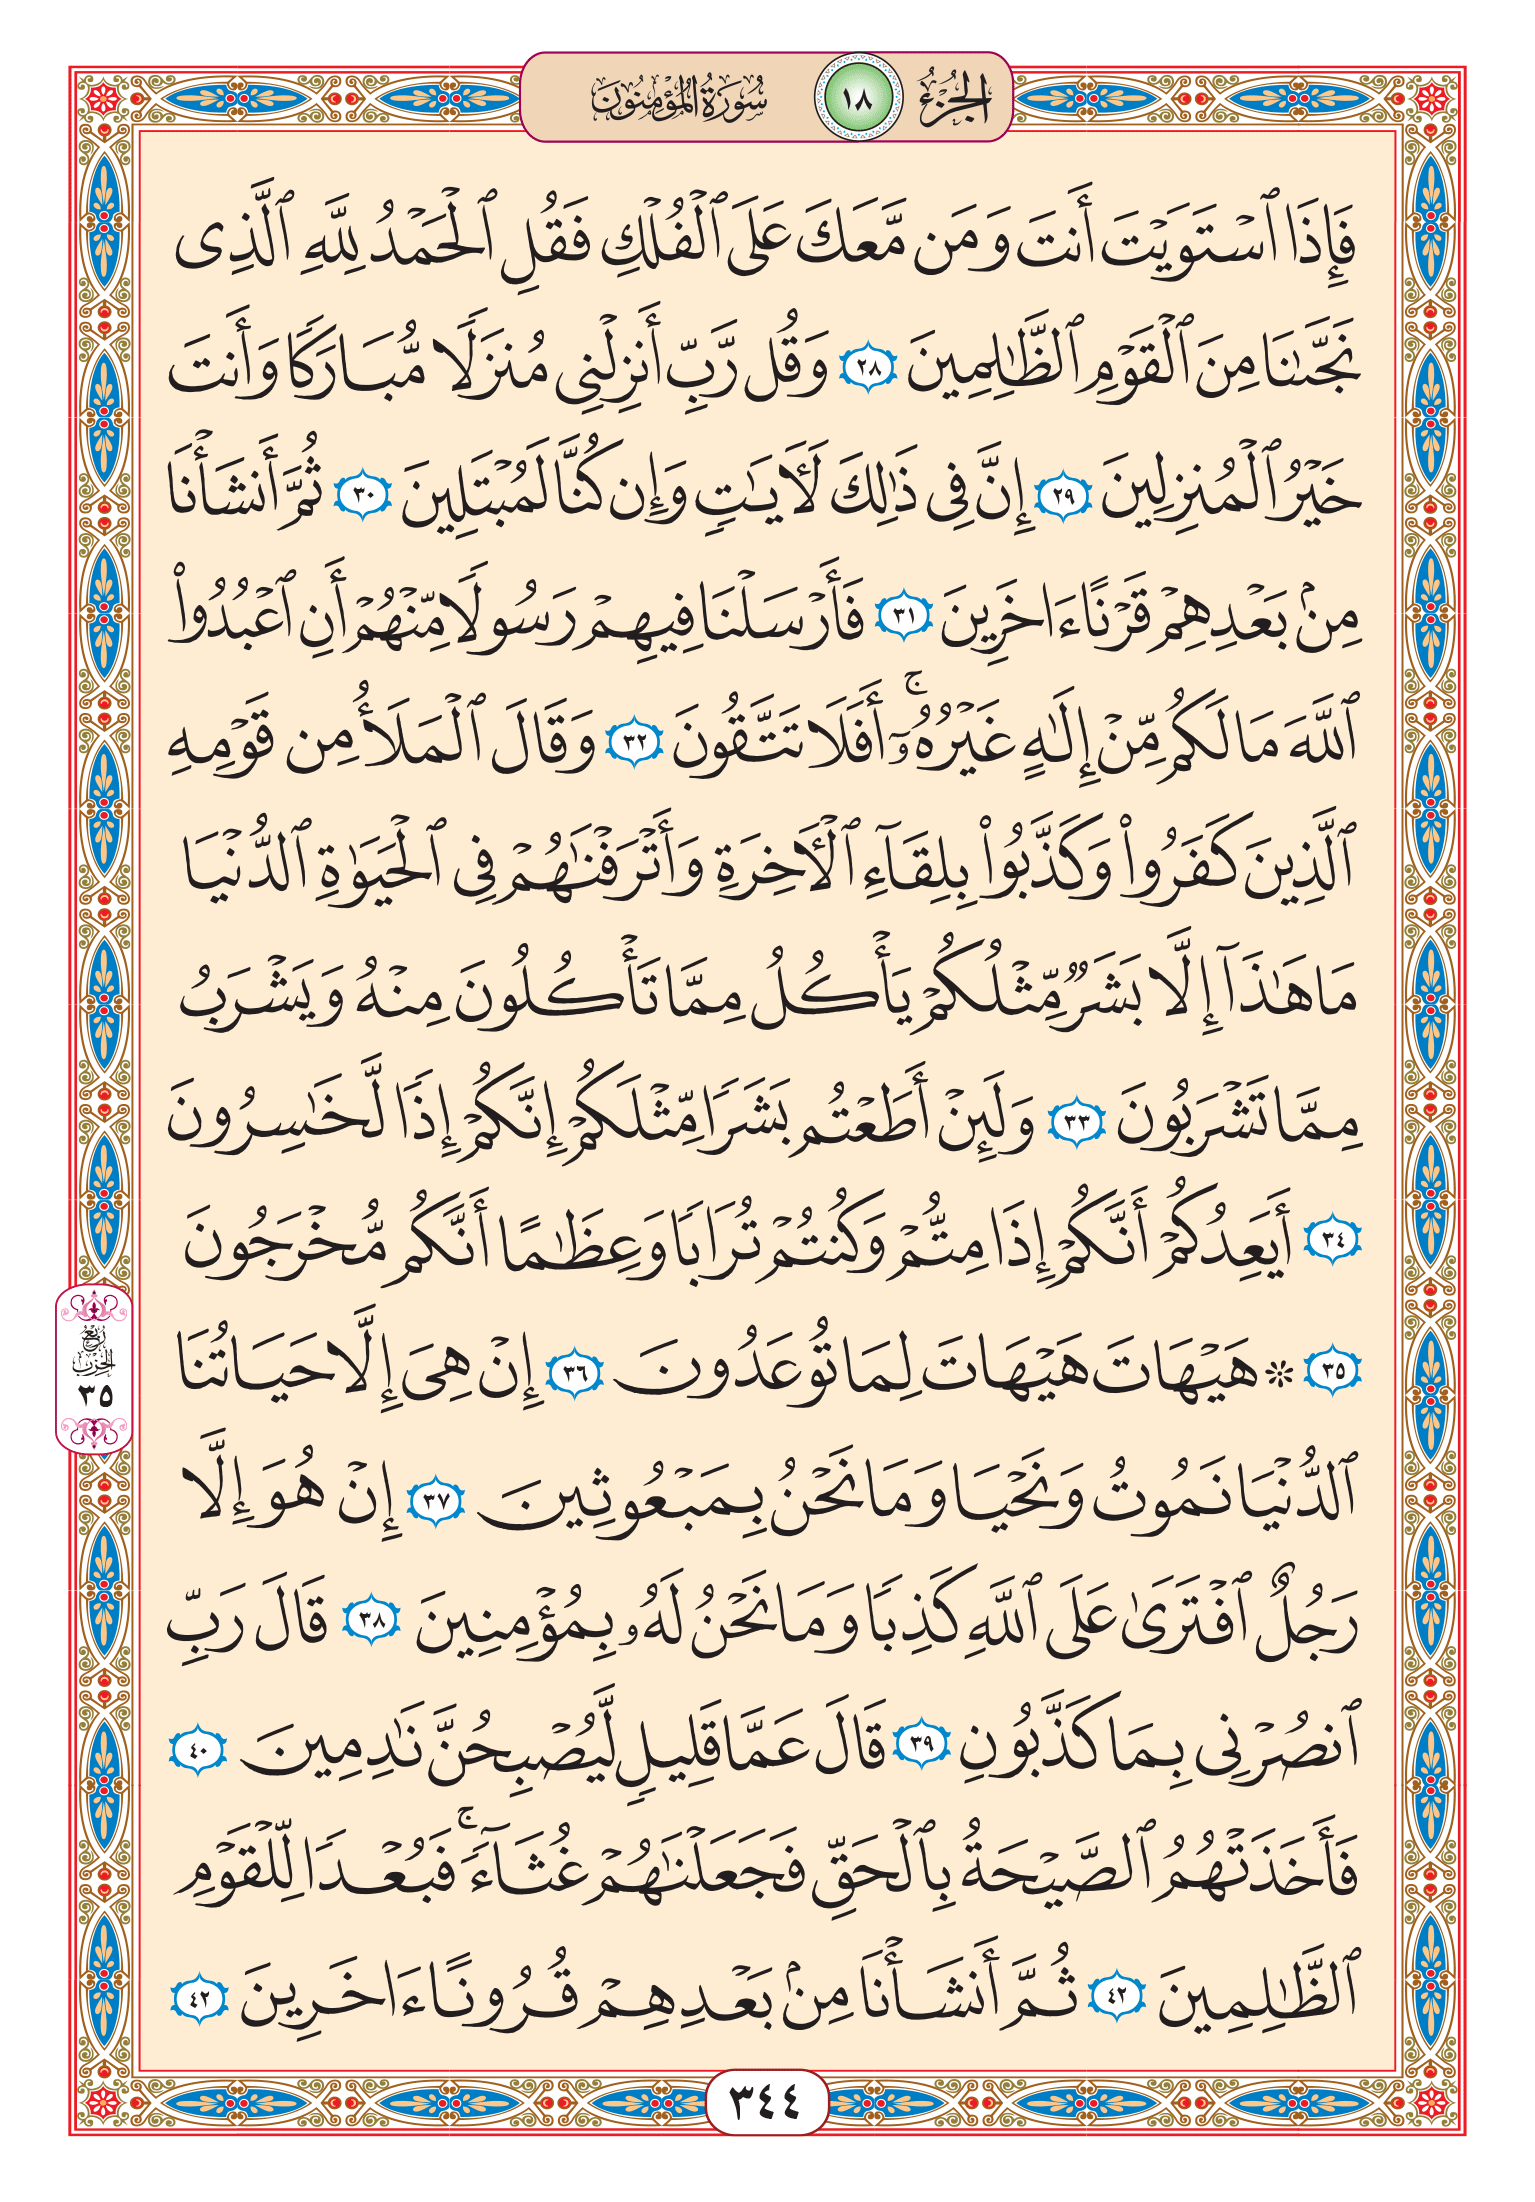 الجزء ١٨ سورة المؤمنون
فَإِذَا ٱسْتَوَيْتَ أَنتَ وَمَن مَّعَكَ عَلَى ٱلْفُلْكِ فَقُلِ ٱلْحَمْدُ لِلَّهِ ٱلَّذِى
نَجَّىٰنَا مِنَ ٱلْقَوْمِ ٱلظَّٰلِمِينَ ٢٨ وَقُل رَّبِّ أَنزِلْنِى مُنزَلًا مُّبَارَكًا وَأَنتَ
خَيْرُ ٱلْمُنزِلِينَ ٢٩ إِنَّ فِى ذَٰلِكَ لَـَٔايَٰتٍ وَإِن كُنَّا لَمُبْتَلِينَ ٣٠ ثُمَّ أَنشَأْنَا
مِنۢ بَعْدِهِمْ قَرْنًا ءَاخَرِينَ ٣١ فَأَرْسَلْنَا فِيهِمْ رَسُولًا مِّنْهُمْ أَنِ ٱعْبُدُوا۟
ٱللَّهَ مَا لَكُم مِّنْ إِلَٰهٍ غَيْرُهُۥٓ ۚ أَفَلَا تَتَّقُونَ ٣٢ وَقَالَ ٱلْمَلَأُ مِن قَوْمِهِ
ٱلَّذِينَ كَفَرُوا۟ وَكَذَّبُوا۟ بِلِقَآءِ ٱلْـَٔاخِرَةِ وَأَتْرَفْنَٰهُمْ فِى ٱلْحَيَوٰةِ ٱلدُّنْيَا
مَا هَٰذَآ إِلَّا بَشَرٌ مِّثْلُكُمْ يَأْكُلُ مِمَّا تَأْكُلُونَ مِنْهُ وَيَشْرَبُ
مِمَّا تَشْرَبُونَ ٣٣ وَلَئِنْ أَطَعْتُم بَشَرًا مِّثْلَكُمْ إِنَّكُمْ إِذًا لَّخَٰسِرُونَ
٣٤ أَيَعِدُكُمْ أَنَّكُمْ إِذَا مِتُّمْ وَكُنتُمْ تُرَابًا وَعِظَٰمًا أَنَّكُم مُّخْرَجُونَ
٣٥ ۞ هَيْهَاتَ هَيْهَاتَ لِمَا تُوعَدُونَ ٣٦ إِنْ هِىَ إِلَّا حَيَاتُنَا
ربع الحزب ٣٥
ٱلدُّنْيَا نَمُوتُ وَنَحْيَا وَمَا نَحْنُ بِمَبْعُوثِينَ ٣٧ إِنْ هُوَ إِلَّا
رَجُلٌ ٱفْتَرَىٰ عَلَى ٱللَّهِ كَذِبًا وَمَا نَحْنُ لَهُۥ بِمُؤْمِنِينَ ٣٨ قَالَ رَبِّ
ٱنصُرْنِى بِمَا كَذَّبُونِ ٣٩ قَالَ عَمَّا قَلِيلٍ لَّيُصْبِحُنَّ نَٰدِمِينَ ٤٠
فَأَخَذَتْهُمُ ٱلصَّيْحَةُ بِٱلْحَقِّ فَجَعَلْنَٰهُمْ غُثَآءً ۚ فَبُعْدًا لِّلْقَوْمِ
ٱلظَّٰلِمِينَ ٤٢ ثُمَّ أَنشَأْنَا مِنۢ بَعْدِهِمْ قُرُونًا ءَاخَرِينَ ٤٢
٣٤٤